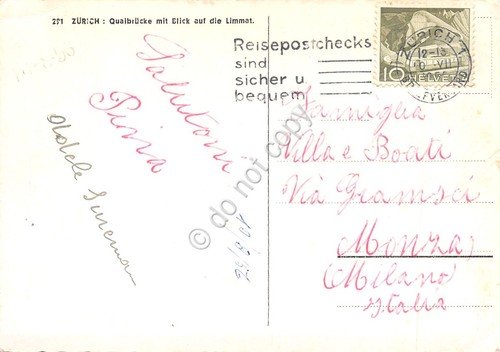 291 ZÜRICH : Quaibrücke mit Blick auf die Limmat.
Reisepostchecks
sind
sicher u.
bequem
ZÜRICH 1
12-13
VII
BRIEFVERSAND
10
HELVETIA
Salutoni
Pina
Famiglia
Villa e Boati
Via Gramsci
Monza
Milano
Italia
do not copy